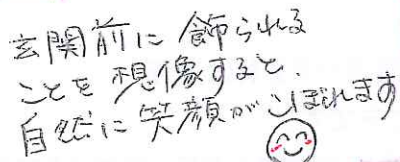 玄関前に飾られる
ことを想像すると、
自然に笑顔がこぼれます